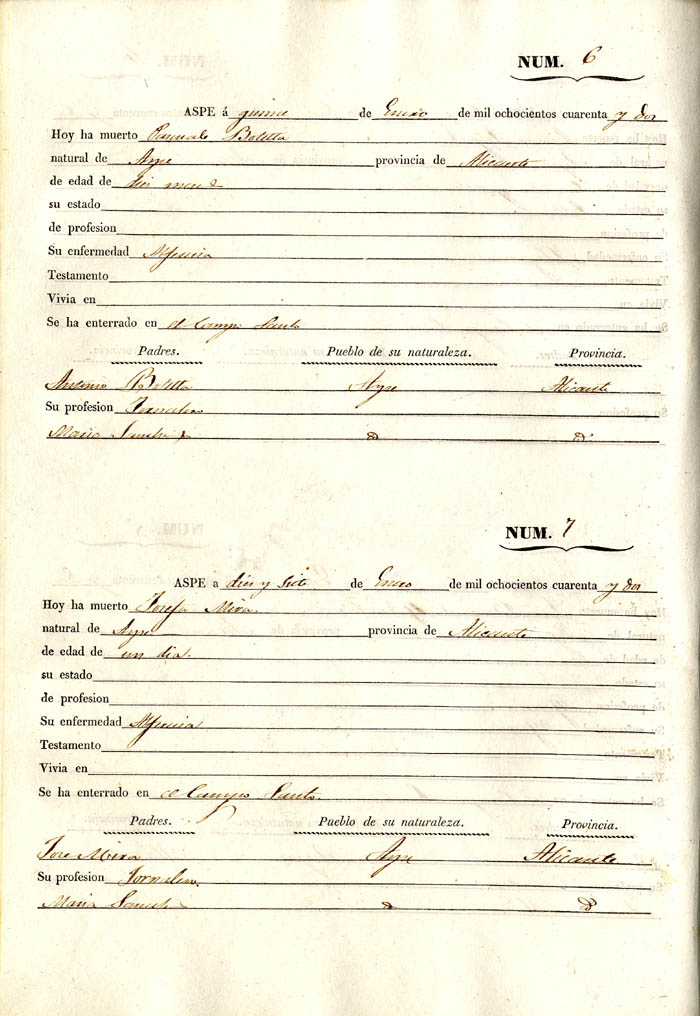 NUM. 6
ASPE á quince de Enero de mil ochocientos cuarenta y dos
Hoy ha muerto Botella
natural de Aspe provincia de Alicante
de edad de
su estado
de profesion
Su enfermedad Alferecia
Testamento
Vivia en
Se ha enterrado en el Campo Santo
Padres. Pueblo de su naturaleza. Provincia.
Antonio Botella Aspe Alicante
Su profesion Jornalero
Maria
NUM. 7
ASPE a dies y siete de Enero de mil ochocientos cuarenta y dos
Hoy ha muerto Josefa Mira.
natural de Aspe provincia de Alicante
de edad de un dia.
su estado
de profesion
Su enfermedad Alferecia
Testamento
Vivia en
Se ha enterrado en el Campo Santo.
Padres. Pueblo de su naturaleza. Provincia.
Jose Mira Aspe Alicante
Su profesion Jornalero.
Maria